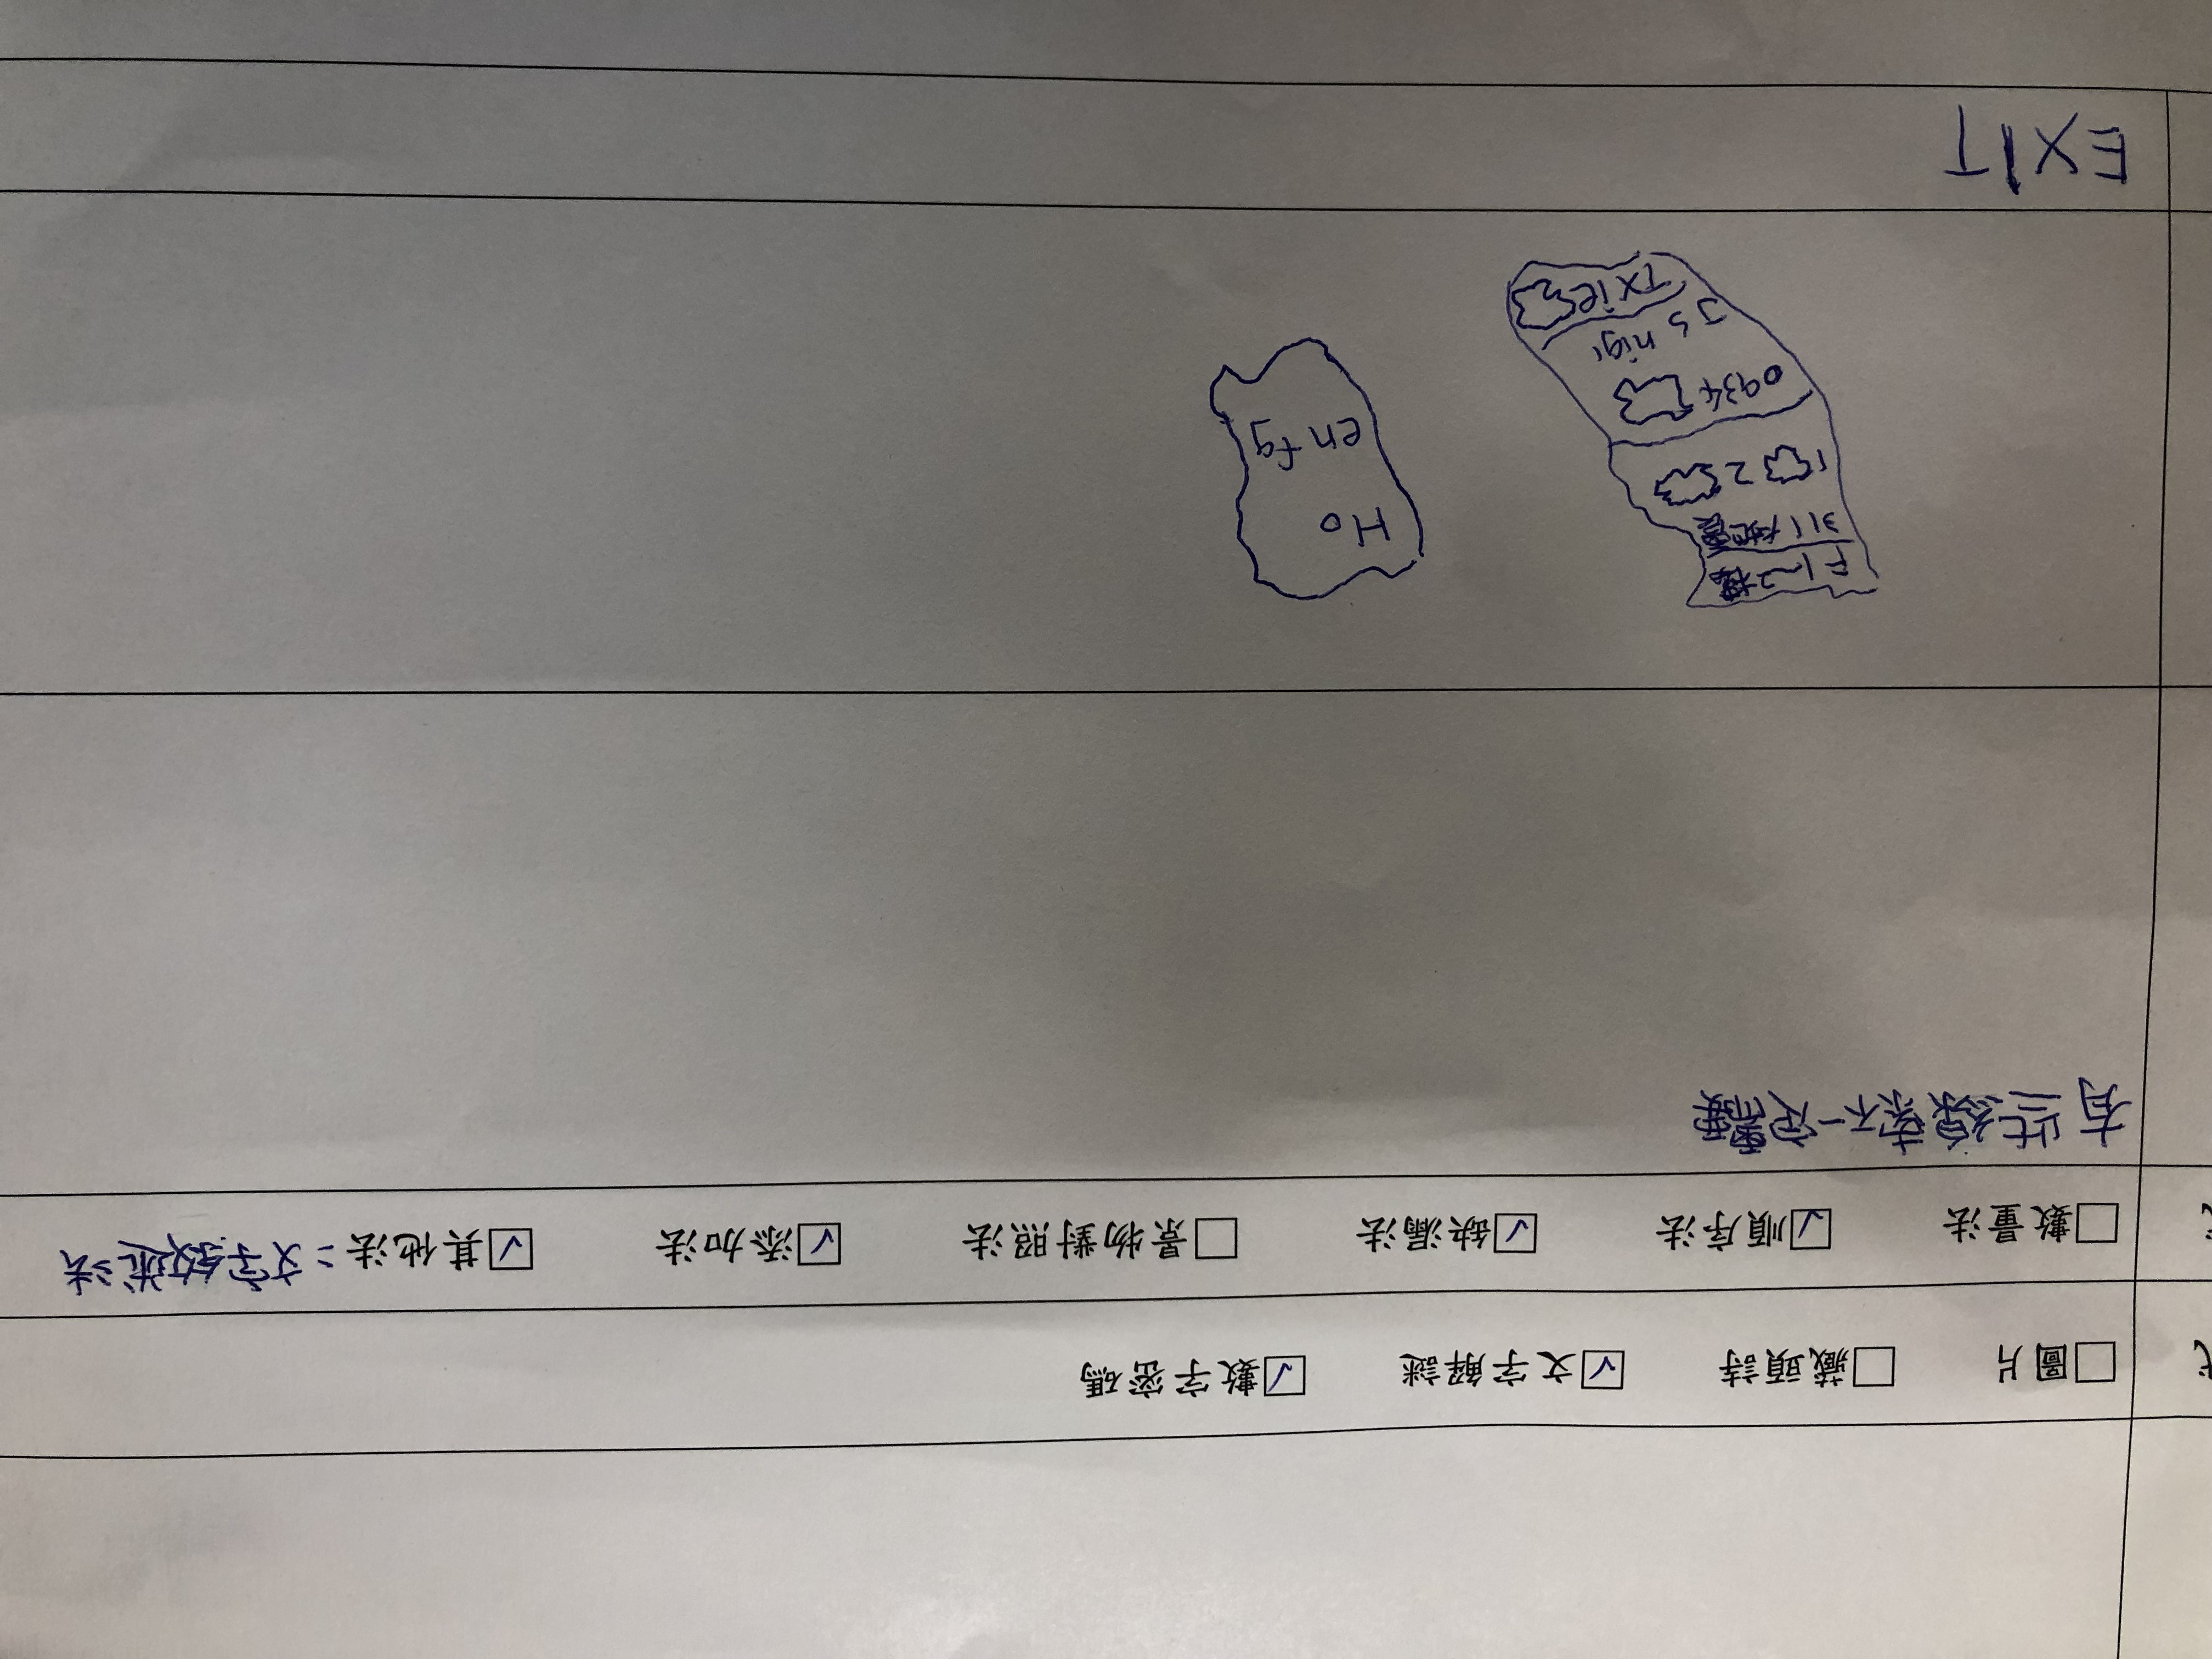 □圖片 □藏頭詩 ☑文字解謎 ☑數字密碼
□數量法 ☑順序法 ☑缺漏法 □景物對照法 ☑添加法 ☑其他法：文字敘述法
有些線索不一定需要
F 1~2樓
311大地震
1 2
0934
JS nigi
TXie
Ho
en fg
EXIT